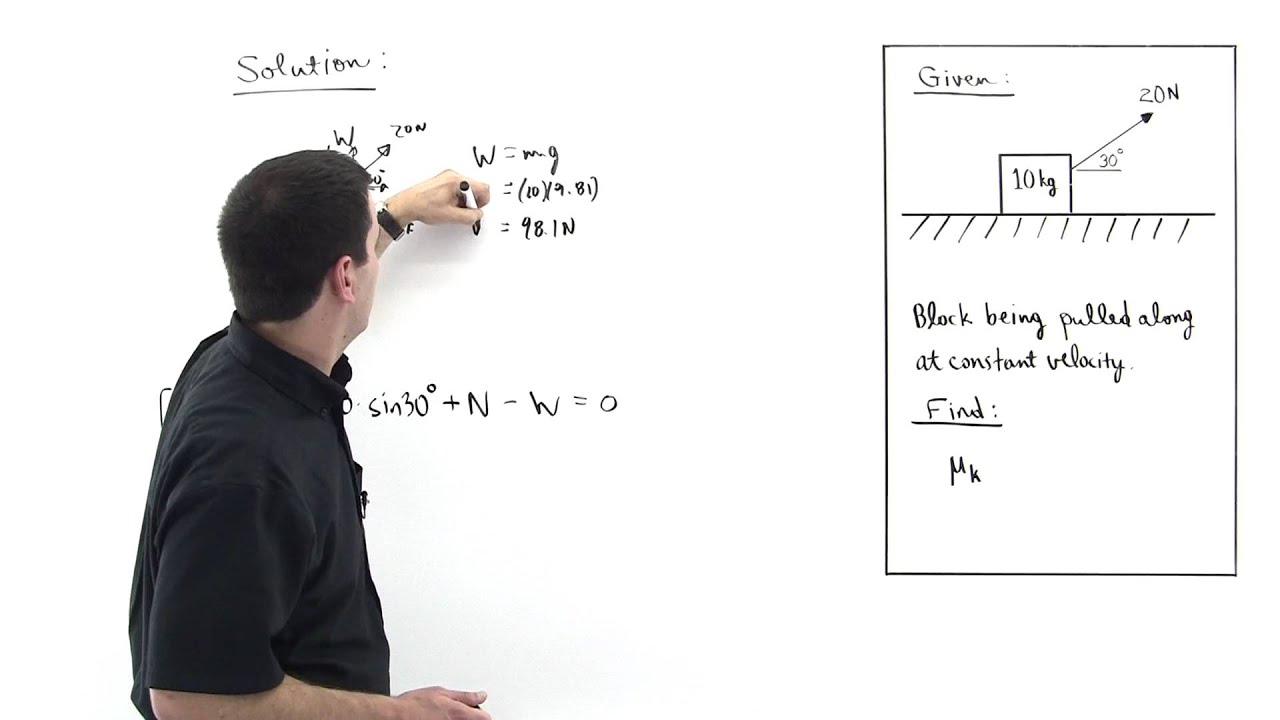 Solution:
W
20N
W = mg
= (10)(9.81)
= 98.1N
sin30° + N - W = 0
Given:
20N
30°
10kg
Block being pulled along
at constant velocity.
Find:
μk